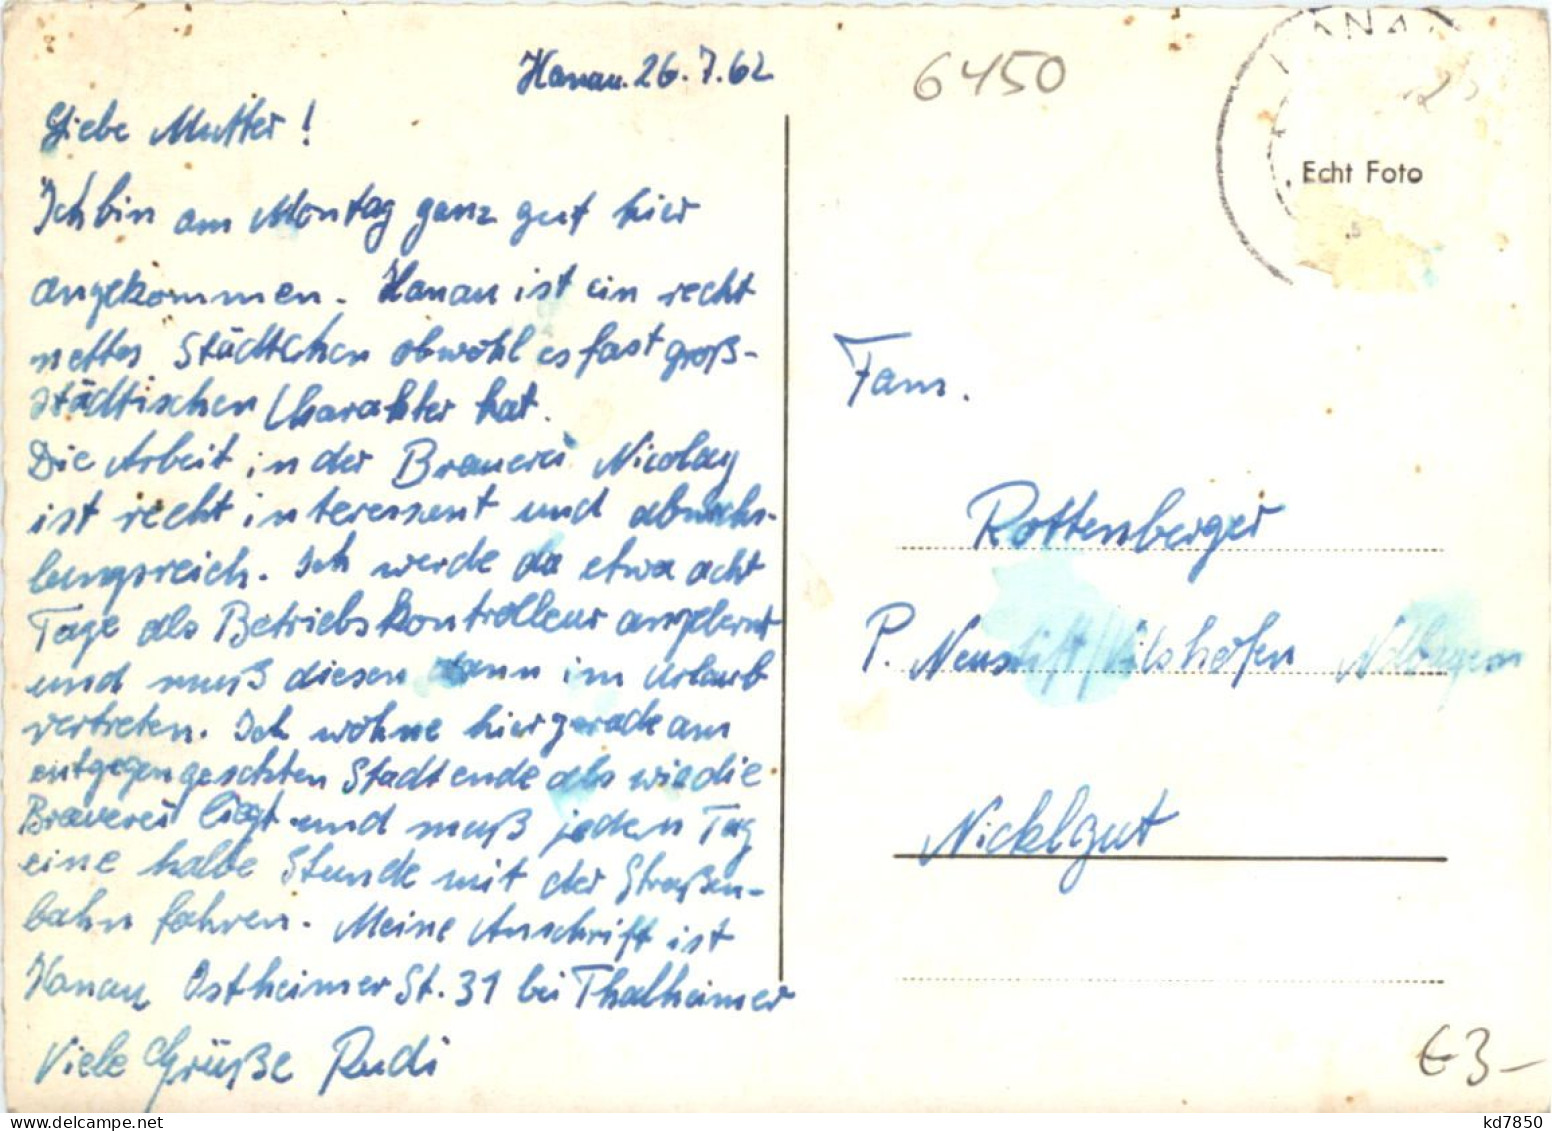 Hanau. 26.7.62
Liebe Mutter!
Ich bin am Montag ganz gut hier
angekommen. Hanau ist ein recht
nettes Städtchen obwohl es fast groß-
städtischen Charakter hat.
Die Arbeit in der Brauerei Nicolay
ist recht interessant und abwechs-
lungsreich. Ich werde da etwa acht
Tage als Betriebskontrolleur angelernt
und muß diesen dann im Urlaub
vertreten. Ich wohne hier gerade am
entgegengesetzten Stadtende als wie die
Brauerei liegt und muß jeden Tag
eine halbe Stunde mit der Straßen-
bahn fahren. Meine Anschrift ist
Hanau Ostheimer St. 31 bei Thalheimer
Viele Grüße Rudi
6450
HANAU
Echt Foto
Fam.
Rottenberger
P. Neustift/Vilshofen Ndbayern
Nicklgut
€3-
kd7850